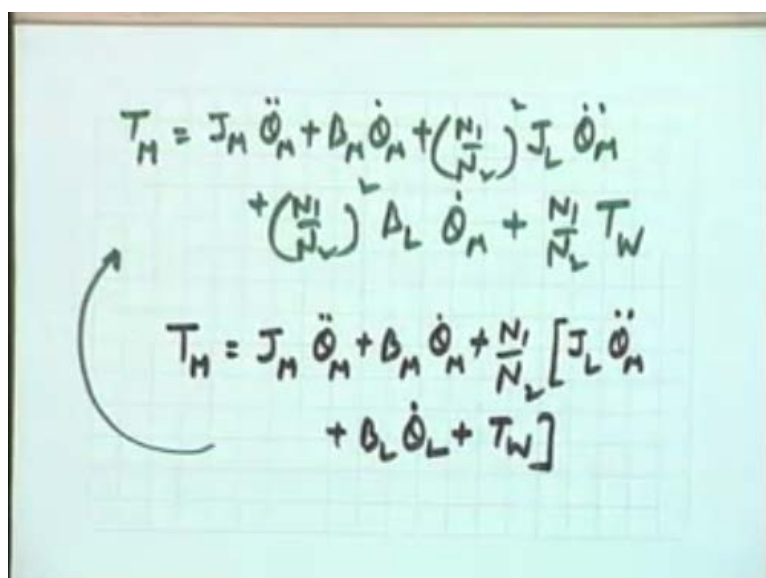 T_M = J_M θ̈_M + B_M θ̇_M + (N₁/N₂)² J_L θ̈_M
+ (N₁/N₂)² B_L θ̇_M + N₁/N₂ T_W
T_M = J_M θ̈_M + B_M θ̇_M + N₁/N₂ [J_L θ̈_M
+ B_L θ̇_L + T_W]